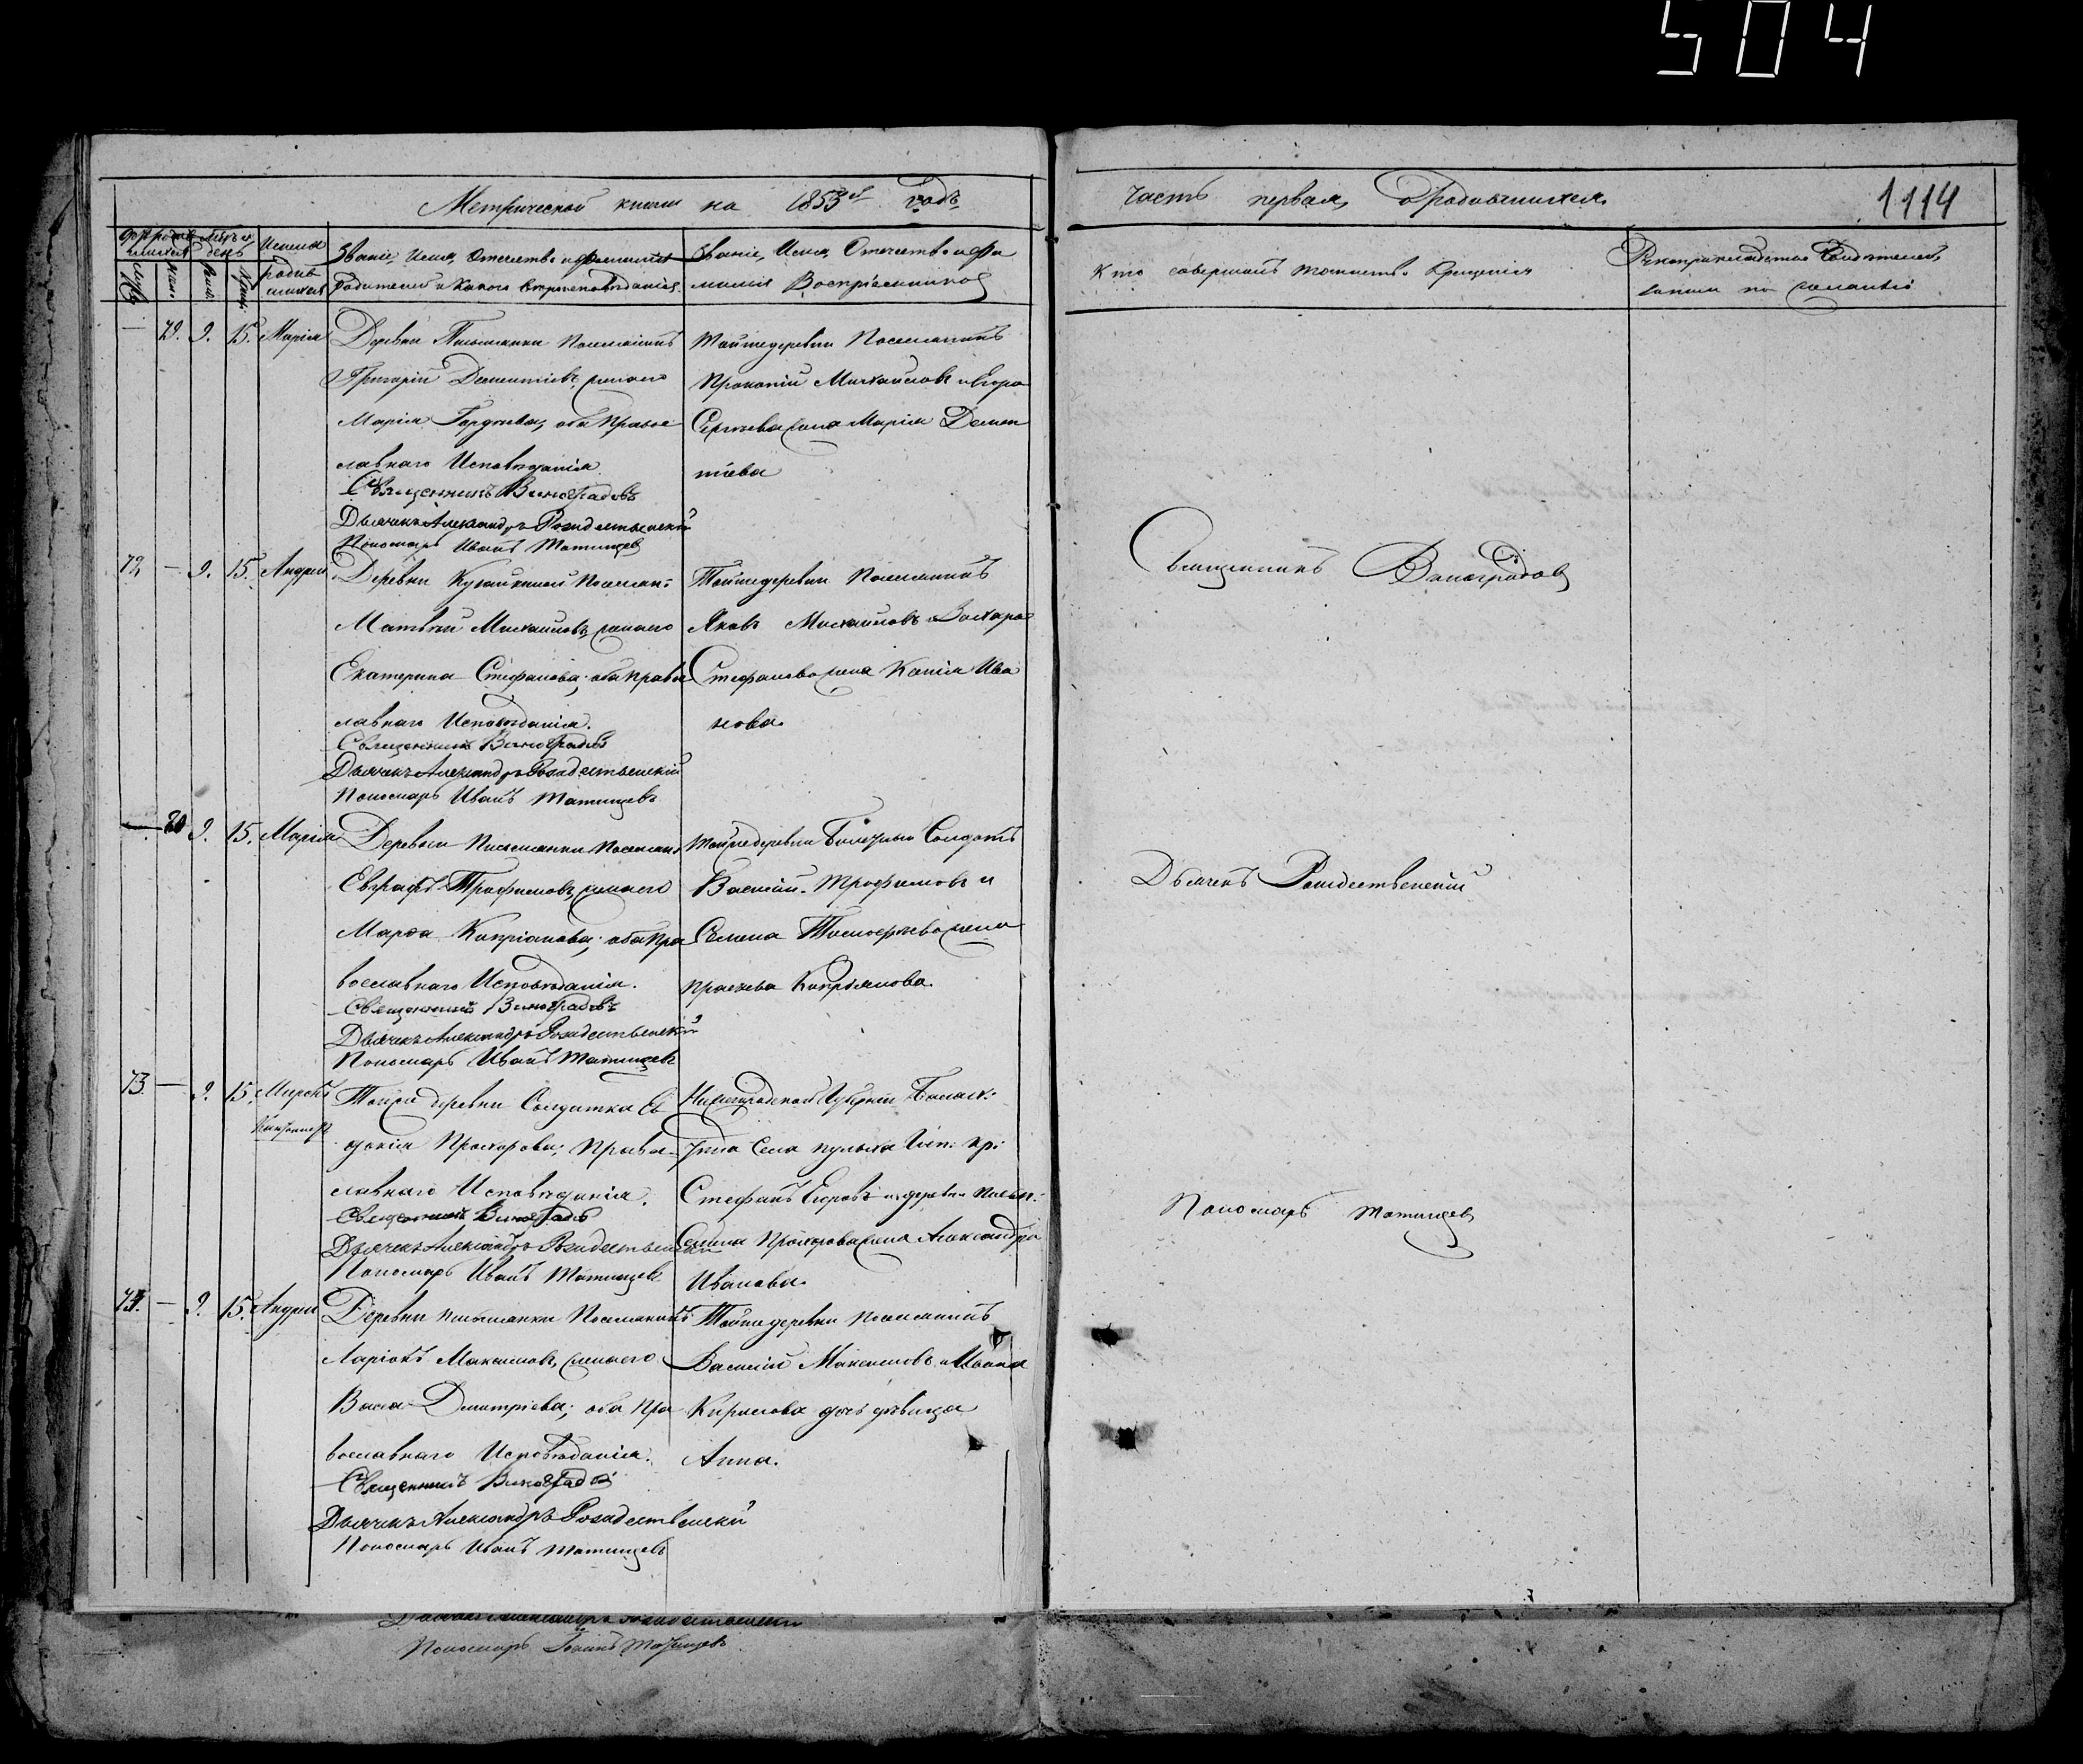 504
Метрической книги на 1853й годъ
Часть первая, о Родившихся.
1114
Имена родив шихся
Званіе, Имя, Отчество и фамилія
Родителей и Какого вѣроисповѣданія.
Званіе, Имя, Отчество и фа
милія Воспріемниковъ
Кто совершалъ таинство Крещенія
Рукоприкладство Свидѣтелей
записи по желанію
— 79. 9. 15. Марія Деревни Письмянки Поселянинъ
Григорій Дементіевъ, жена его
Марія Гордѣева, оба Право
славнаго Исповѣданія
Священникъ Виноградовъ
Дьячекъ Александръ Рождественскій
Пономарь Иванъ Татищев
Тойже деревни Поселянинъ
Прокопій Михайловъ и Егора
Сергѣева жена Марія Демен
тіева
72, — 9. 15. Андрей Деревни Поселян:
Матвѣй Михайловъ, жена его
Екатерина Стефанова; оба Право
славнаго Исповѣданія.
Священникъ Виноградовъ
Дьячекъ Александръ Рождественскій
Пономарь Иванъ Татищевъ
Тойже деревни Поселянинъ
Яковъ Михайловъ и Захара
Стефанова жена Ксенія Ива
нова.
Священникъ Виноградов
— 80 9. 15. Марія Деревни Письмянки Поселян:
Евграфъ Трофимовъ, жена его
Марѳа Кипріанова; оба Пра
вославнаго Исповѣданія.
Священникъ Виноградовъ
Дьячекъ Александръ Рождественскій
Пономарь Иванъ Татищевъ
Тойже деревни Солдатъ
Василій Трофимовъ и
Семена Тимофѣева жена
Кипріанова.
Дьячекъ Рождественскій
73. — 9. 15. Тойже деревни Солдатка Ев
докія Прохорова; Право
славнаго Исповѣданія.
Священникъ Виноградовъ
Дьячекъ Александръ Рождественскій
Пономарь Иванъ Татищевъ
Нижегородской Губерніи
уѣзда Села кр:
Стефанъ Егоровъ и деревни Письм.:
Семена Прохорова жена Александра
Иванова.
Пономарь Татищев
74. — 9. 15. Андрей Деревни Письмянки Поселянинъ
Ларіонъ Максимовъ, жена его
Васса Дмитріева; оба Пра
вославнаго Исповѣданія.
Священникъ Виноградовъ
Дьячекъ Александръ Рождественскій
Пономарь Иванъ Татищевъ
Тойже деревни Поселянинъ
Василій Максимовъ и Ивана
Кирилова дочь дѣвица
Анна.
Дьячекъ Александръ Рождественскій
Пономарь Иванъ Татищевъ